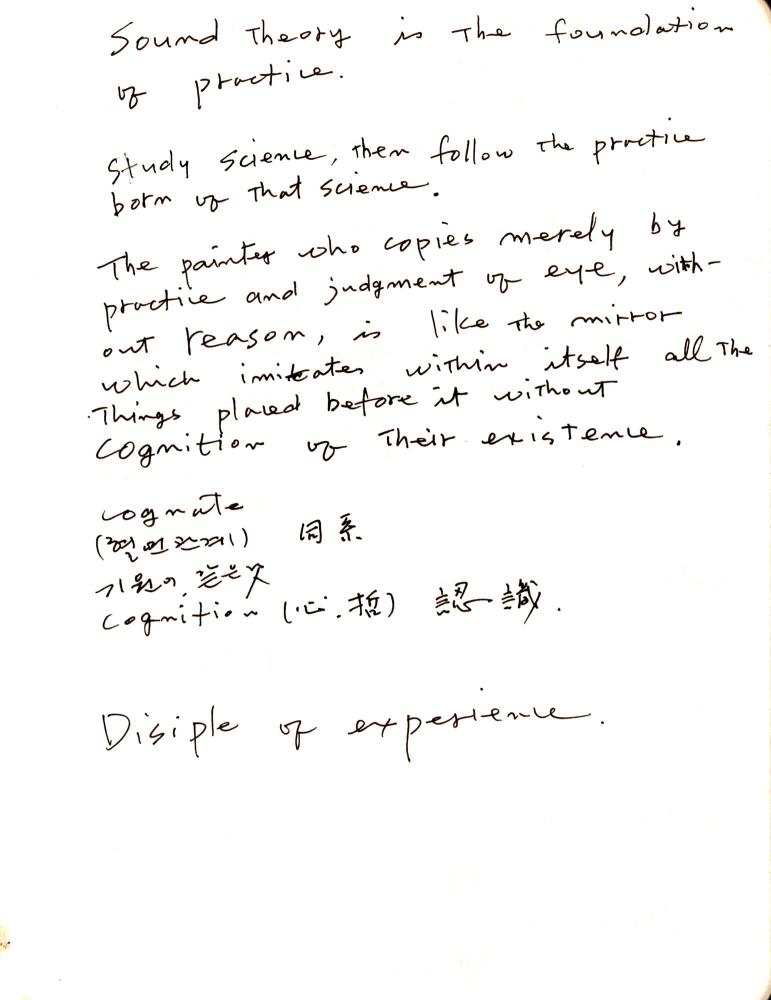 Sound Theory is The foundation
of practice.
Study science, then follow The practice
born of That science.
The painter who copies merely by
practice and judgment of eye, with-
out reason, is like The mirror
which imitates within itself all The
Things placed before it without
cognition of Their existence.
cognate
(혈연관계) 同系
기원이 같은 것
cognition (心.哲) 認識.
Disiple of experience.